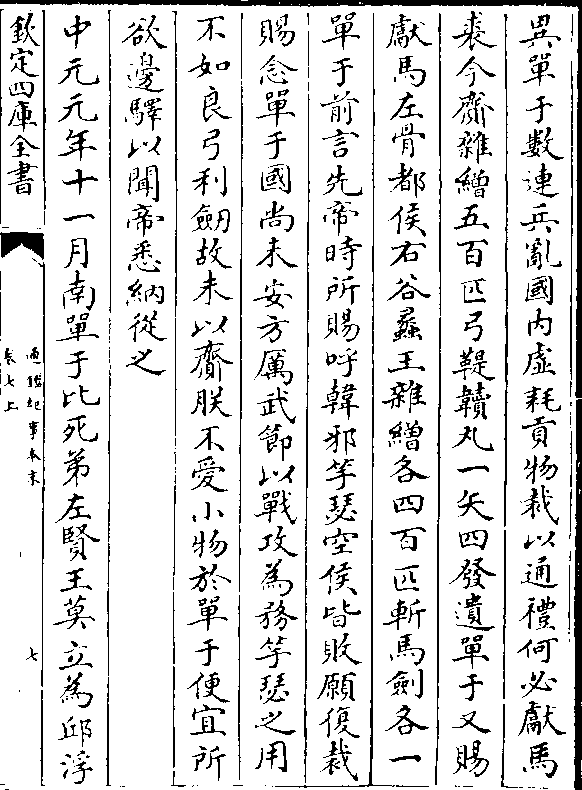 異單于數連兵亂國内虚耗貢物裁以通禮何必獻馬
裘今齎雜繒五百匹弓鞬韥丸一矢四發遺單于又賜
獻馬左骨都侯右谷蠡王雜繒各四百匹斬馬劍各一
單于前言先帝時所賜呼韓邪竽瑟空侯皆敗願復裁
賜念單于國尚未安方厲武節以戰攻為務竽瑟之用
不如良弓利劒故未以齎朕不愛小物於單于便宜所
欲邊驛以聞帝悉納從之
中元元年十一月南單于比死弟左賢王莫立為邱浮
欽定四庫全書
通鑑紀事本末
卷七上
七